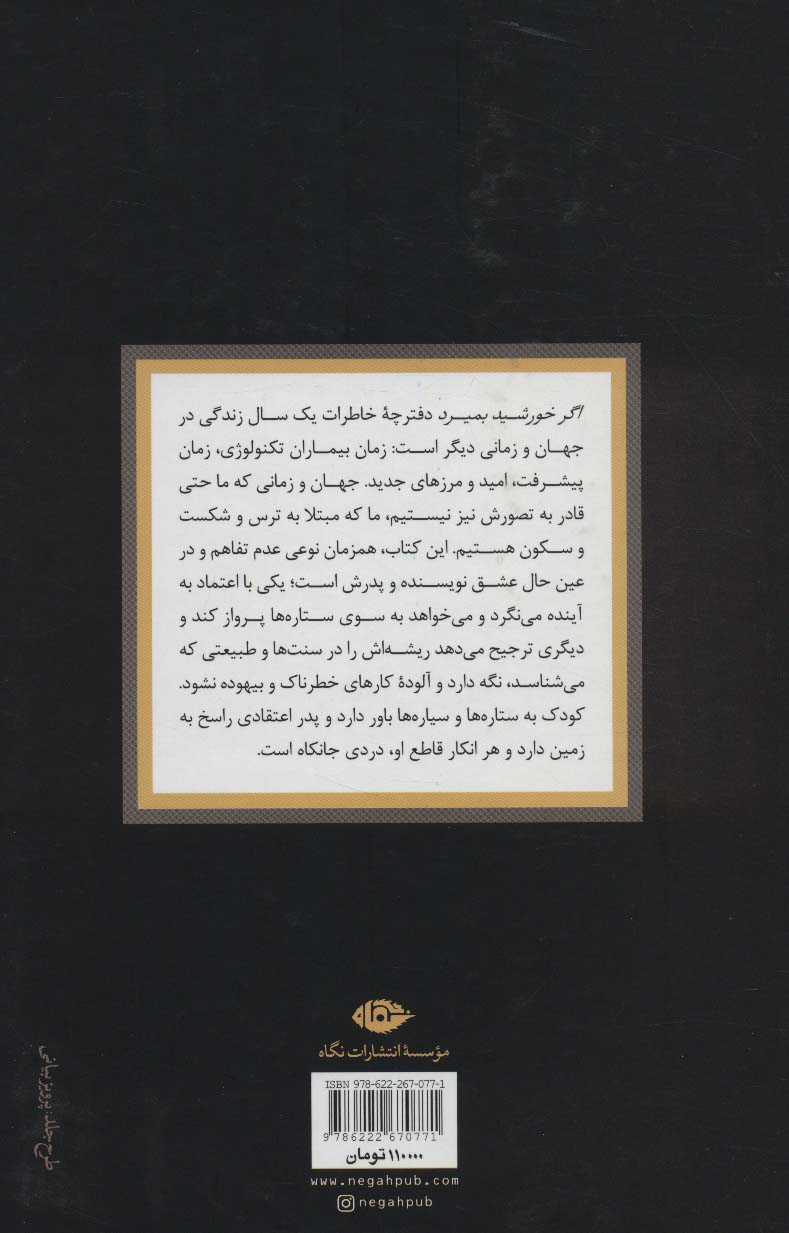 اگر خورشید بمیرد دفترچهٔ خاطرات یک سال زندگی در
جهان و زمانی دیگر است: زمان بیماران تکنولوژی، زمان
پیشرفت، امید و مرزهای جدید. جهان و زمانی که ما حتی
قادر به تصورش نیز نیستیم، ما که مبتلا به ترس و شکست
و سکون هستیم. این کتاب، همزمان نوعی عدم تفاهم و در
عین حال عشق نویسنده و پدرش است؛ یکی با اعتماد به
آینده می‌نگرد و می‌خواهد به سوی ستاره‌ها پرواز کند و
دیگری ترجیح می‌دهد ریشه‌اش را در سنت‌ها و طبیعتی که
می‌شناسد، نگه دارد و آلودهٔ کارهای خطرناک و بیهوده نشود.
کودک به ستاره‌ها و سیاره‌ها باور دارد و پدر اعتقادی راسخ به
زمین دارد و هر انکار قاطع او، دردی جانکاه است.
نگاه
مؤسسهٔ انتشارات نگاه
ISBN 978-622-267-077-1
9 786222 670771
۱۱۰۰۰۰ تومان
www.negahpub.com
negahpub
طرح جلد: پرویز بیانی